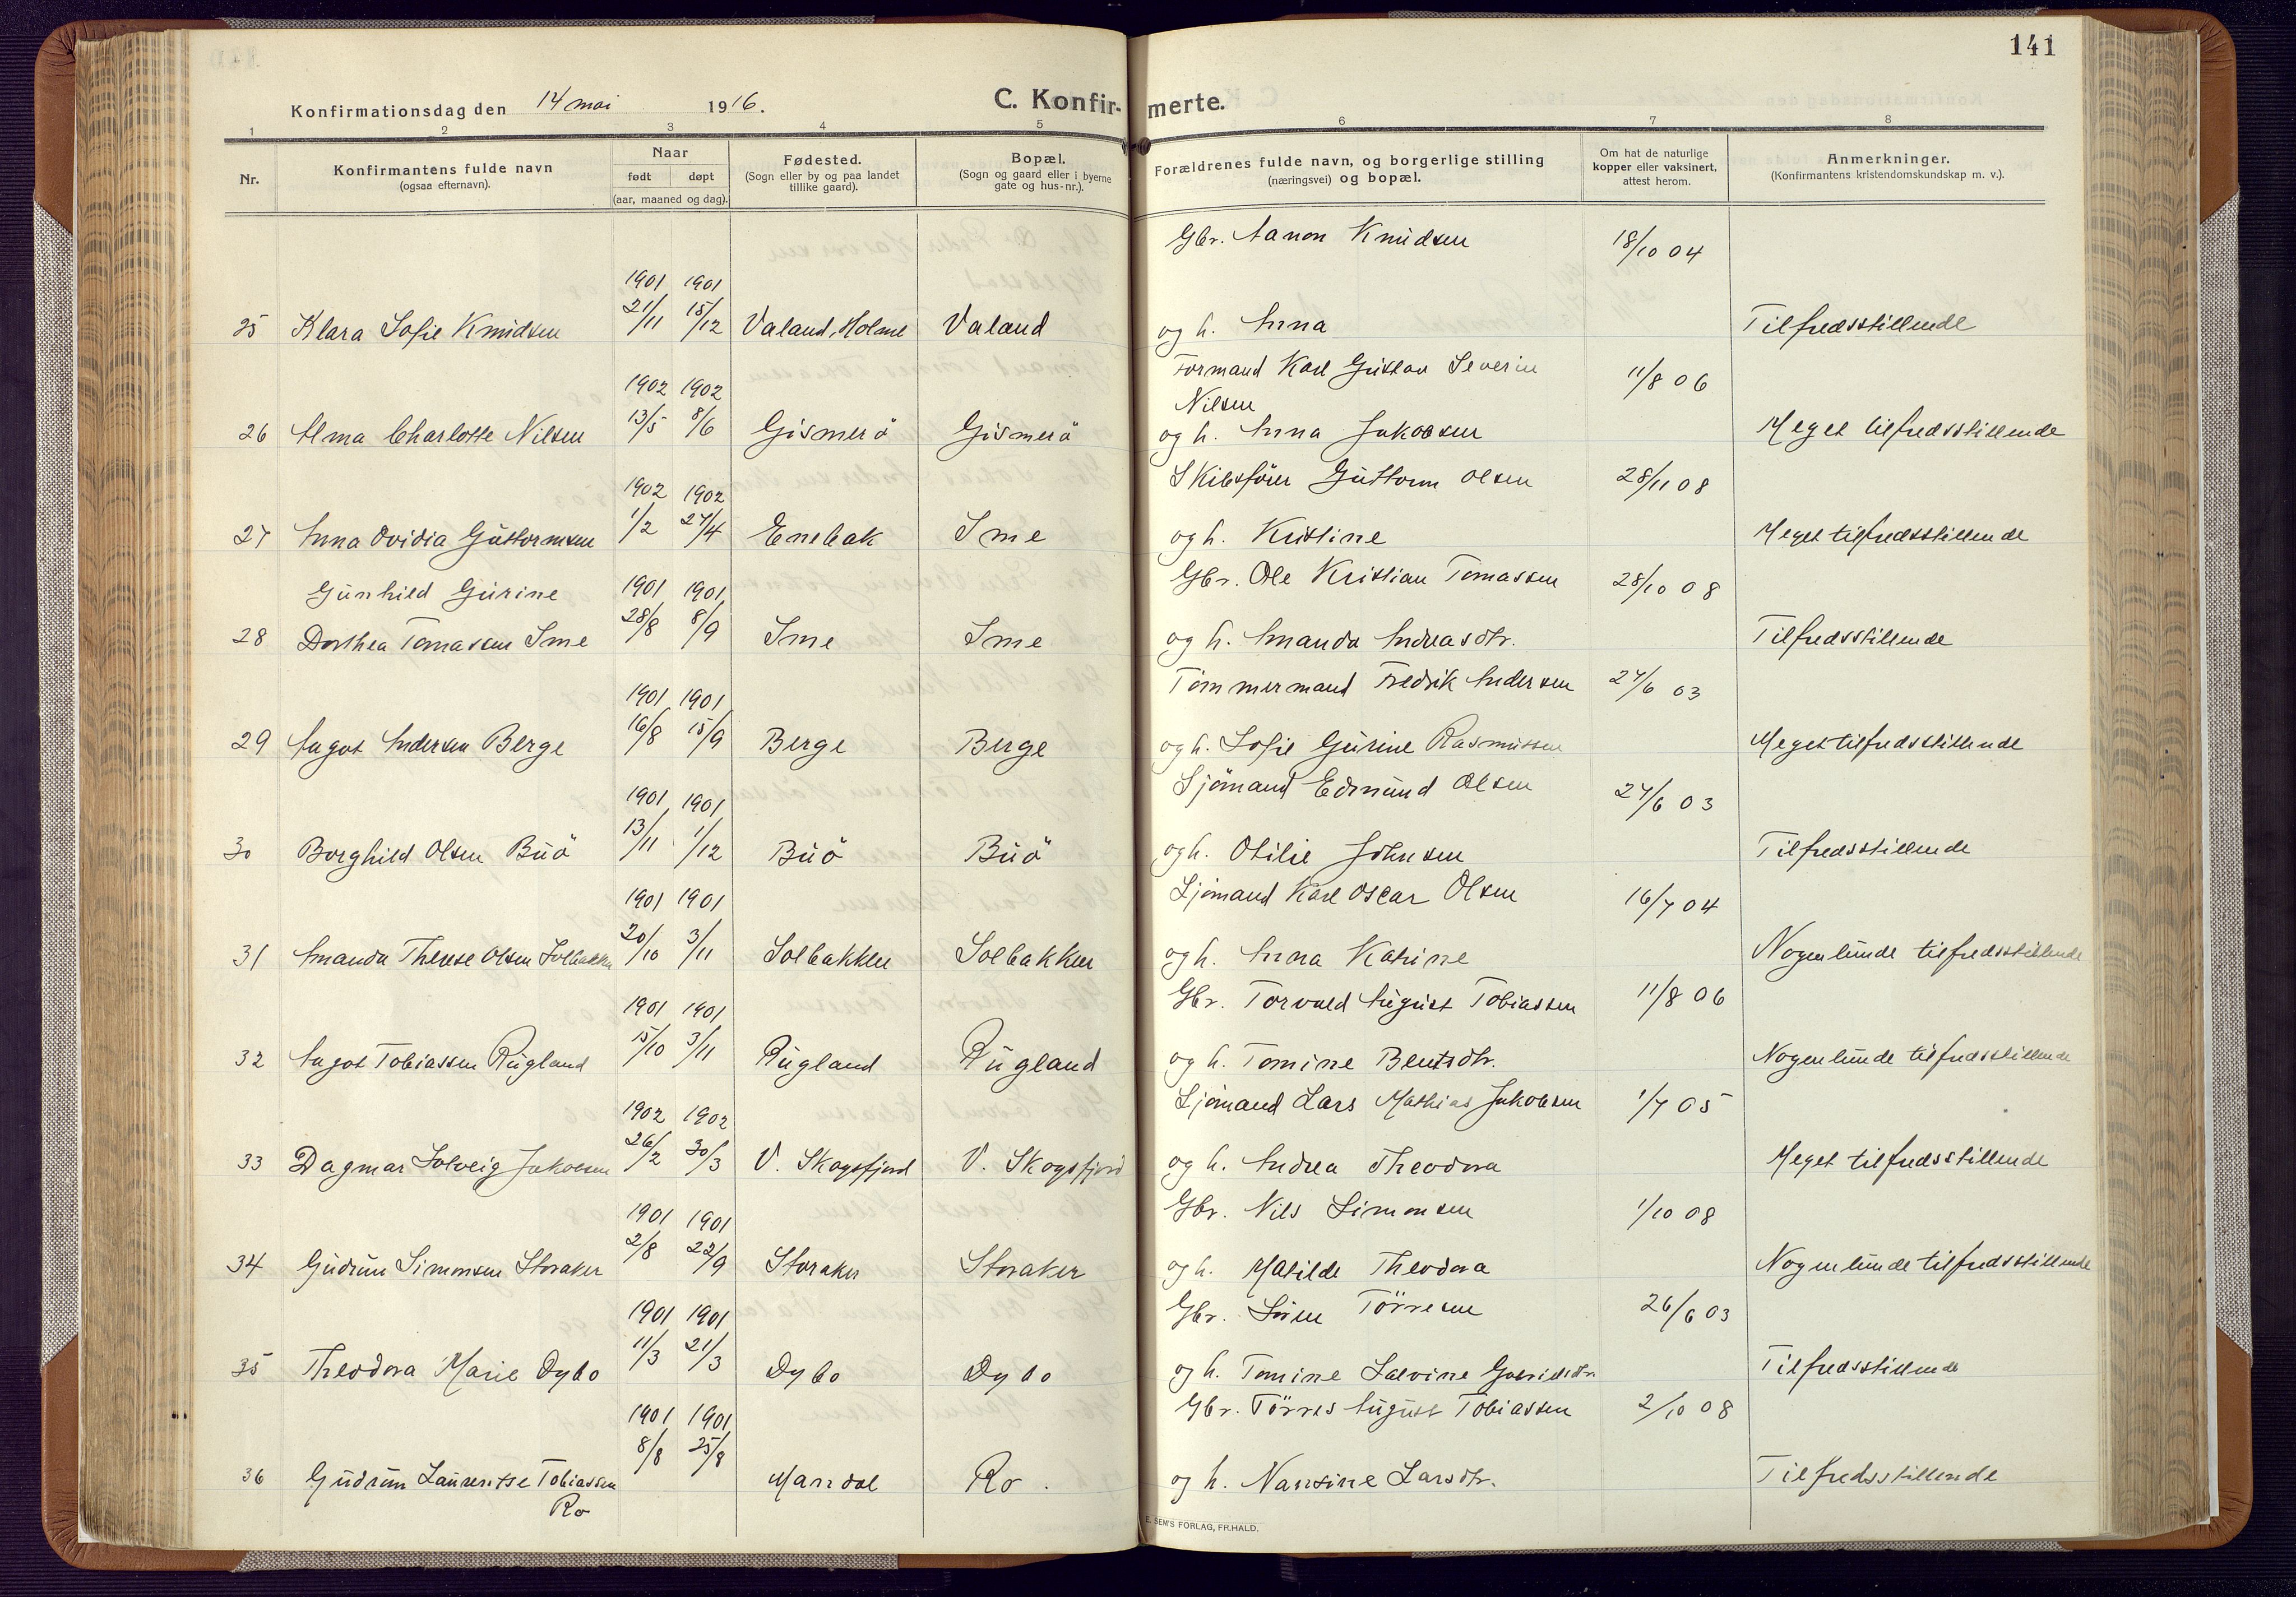 141
Konfirmationsdag den 14 mai 1916.
C. Konfirmerte.
1 2 3 4 5 6 7 8
Nr.
Konfirmantens fulde navn
(ogsaa efternavn).
Naar
født døpt
(aar, maaned og dag).
Fødested.
(Sogn eller by og paa landet
tillike gaard).
Bopæl.
(Sogn og gaard eller i byerne
gate og hus-nr.).
Forældrenes fulde navn, og borgerlige stilling
(næringsvei) og bopæl.
Om hat de naturlige
kopper eller vaksinert,
attest herom.
Anmerkninger.
(Konfirmantens kristendomskundskap m. v.).
Gbr. Aanon Knudsen 18/10 04
1901 1901
21/11 15/12
25 Klara Sofie Knudsen Valand, Holme Valand og h. Anna Tilfredsstillende
Formand Karl Gustav Severin 11/8 06
1902 1902 Nilsen
13/5 8/6
26 Alma Charlotte Nilsen Gismerö Gismerö og h. Anna Jakobsen Meget tilfredsstillende
Skibsförer Guttorm Olsen 28/11 08
1902 1902
1/2 27/4
27 Anna Ovidia Guttormsen Enebak Ime og h. Kristine Meget tilfredsstillende
Gunhild Gurine 1901 1901 Gbr. Ole Kristian Tomassen 28/10 08
28/8 8/9
28 Dorthea Tomassen Ime Ime Ime og h. Amanda Andreasdtr. Tilfredsstillende
Tömmermand Fredrik Andersen 27/6 03
1901 1901
16/8 15/9
29 Aagot Andersen Berge Berge Berge og h. Sofie Gurine Rasmussen Meget tilfredsstillende
Sjömand Edmund Olsen 27/6 03
1901 1901
13/11 1/12
30 Borghild Olsen Buö Buö Buö og h. Otilie Johnsen Tilfredsstillende
Sjömand Karl Oscar Olsen 16/7 04
1901 1901
20/10 3/11
31 Amanda Therese Olsen Solbakken Solbakken Solbakken og h. Anna Katrine Nogenlunde tilfredsstillende
Gbr. Torvald August Tobiassen 11/8 06
1901 1901
15/10 3/11
32 Aagot Tobiassen Rugland Rugland Rugland og h. Tomine Bentsdtr. Nogenlunde tilfredsstillende
Sjömand Lars Mathias Jakobsen 1/7 05
1902 1902
26/2 30/3
33 Dagmar Solveig Jakobsen V. Skogsfjord V. Skogsfjord og h. Andrea Theodora Meget tilfredsstillende
Gbr. Nils Simonsen 1/10 08
1901 1901
2/8 22/9
34 Gudrun Simonsen Storaker Storaker Storaker og h. Matilde Theodora Nogenlunde tilfredsstillende
Gbr. Sören Törresen 26/6 03
1901 1901
11/3 21/3
35 Theodora Marie Dybo Dybo Dybo og h. Tomine Salvine Gabrielsdtr. Tilfredsstillende
Gbr. Törres August Tobiassen 2/10 08
1901 1901
8/8 25/8
36 Gudrun Laurentse Tobiassen Mandal Ro. og h. Nansine Larsdtr. Tilfredsstillende
Ro
E. SEM'S FORLAG, FR.HALD.